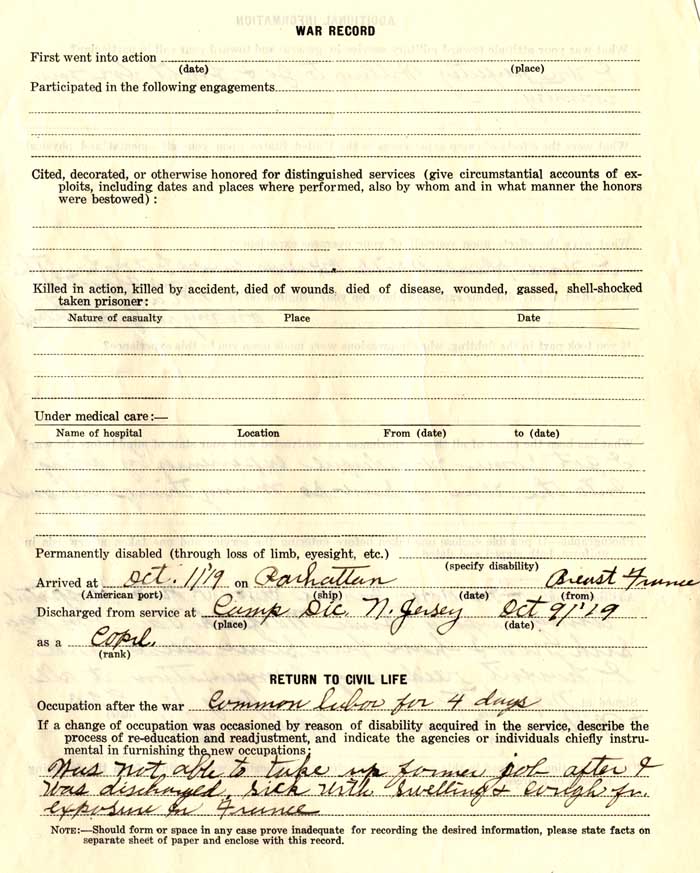 WAR RECORD
First went into action
(date) (place)
Participated in the following engagements
Cited, decorated, or otherwise honored for distinguished services (give circumstantial accounts of ex-
ploits, including dates and places where performed, also by whom and in what manner the honors
were bestowed) :
Killed in action, killed by accident, died of wounds, died of disease, wounded, gassed, shell-shocked
taken prisoner:
Nature of casualty Place Date
Under medical care:—
Name of hospital Location From (date) to (date)
Permanently disabled (through loss of limb, eyesight, etc.)
(specify disability)
Arrived at Oct. 1/19 on Parhattan Breast France
(American port) (ship) (date) (from)
Discharged from service at Camp Dic. N. Jersey Oct 9/'19
(place) (date)
as a Copl.
(rank)
RETURN TO CIVIL LIFE
Occupation after the war Common labor for 4 days
If a change of occupation was occasioned by reason of disability acquired in the service, describe the
process of re-education and readjustment, and indicate the agencies or individuals chiefly instru-
mental in furnishing the new occupations:
Was not able to take up former job after I
was discharged, sick with swelling & cough fr.
exposure in France
NOTE:—Should form or space in any case prove inadequate for recording the desired information, please state facts on
separate sheet of paper and enclose with this record.